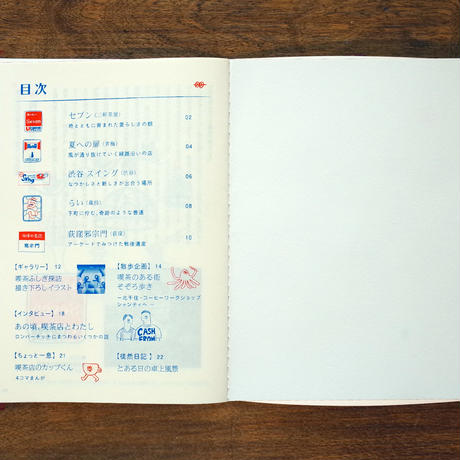 目次
セブン（三軒茶屋） 02
街とともに育まれた愛らしさの館
夏への扉（青梅） 04
風が通り抜けていく線路沿いの店
渋谷 スイング（渋谷） 06
なつかしさと新しさが出合う場所
らい（蔵前） 08
下町に佇む、奇跡のような普通
荻窪邪宗門（荻窪） 10
アーケードでみつけた戦後遺産
Seven
Swing
邪宗門
【ギャラリー】 12
喫茶ふしぎ探訪
描き下ろしイラスト
【散歩企画】 14
喫茶のある街
そぞろ歩き
ー北千住・コーヒーワークショップ
シャンティへー
【インタビュー】 18
あの頃、喫茶店とわたし
ロンパーチッチにまつわるいくつかの話
CASH
FROM
【ちょっと一息】 21
喫茶店のカップくん
4コマまんが
【徒然日記】 22
とある日の卓上風景